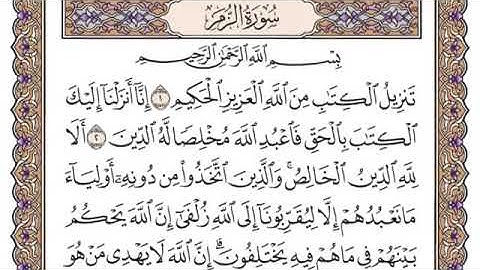 سُورَةُ الزُّمَرِ
بِسْمِ اللَّهِ الرَّحْمَٰنِ الرَّحِيمِ
تَنزِيلُ الْكِتَابِ مِنَ اللَّهِ الْعَزِيزِ الْحَكِيمِ ١ إِنَّا أَنزَلْنَا إِلَيْكَ
الْكِتَابَ بِالْحَقِّ فَاعْبُدِ اللَّهَ مُخْلِصًا لَّهُ الدِّينَ ٢ أَلَا
لِلَّهِ الدِّينُ الْخَالِصُ ۚ وَالَّذِينَ اتَّخَذُوا مِن دُونِهِ أَوْلِيَاءَ
مَا نَعْبُدُهُمْ إِلَّا لِيُقَرِّبُونَا إِلَى اللَّهِ زُلْفَىٰ إِنَّ اللَّهَ يَحْكُمُ
بَيْنَهُمْ فِي مَا هُمْ فِيهِ يَخْتَلِفُونَ ۗ إِنَّ اللَّهَ لَا يَهْدِي مَنْ هُوَ